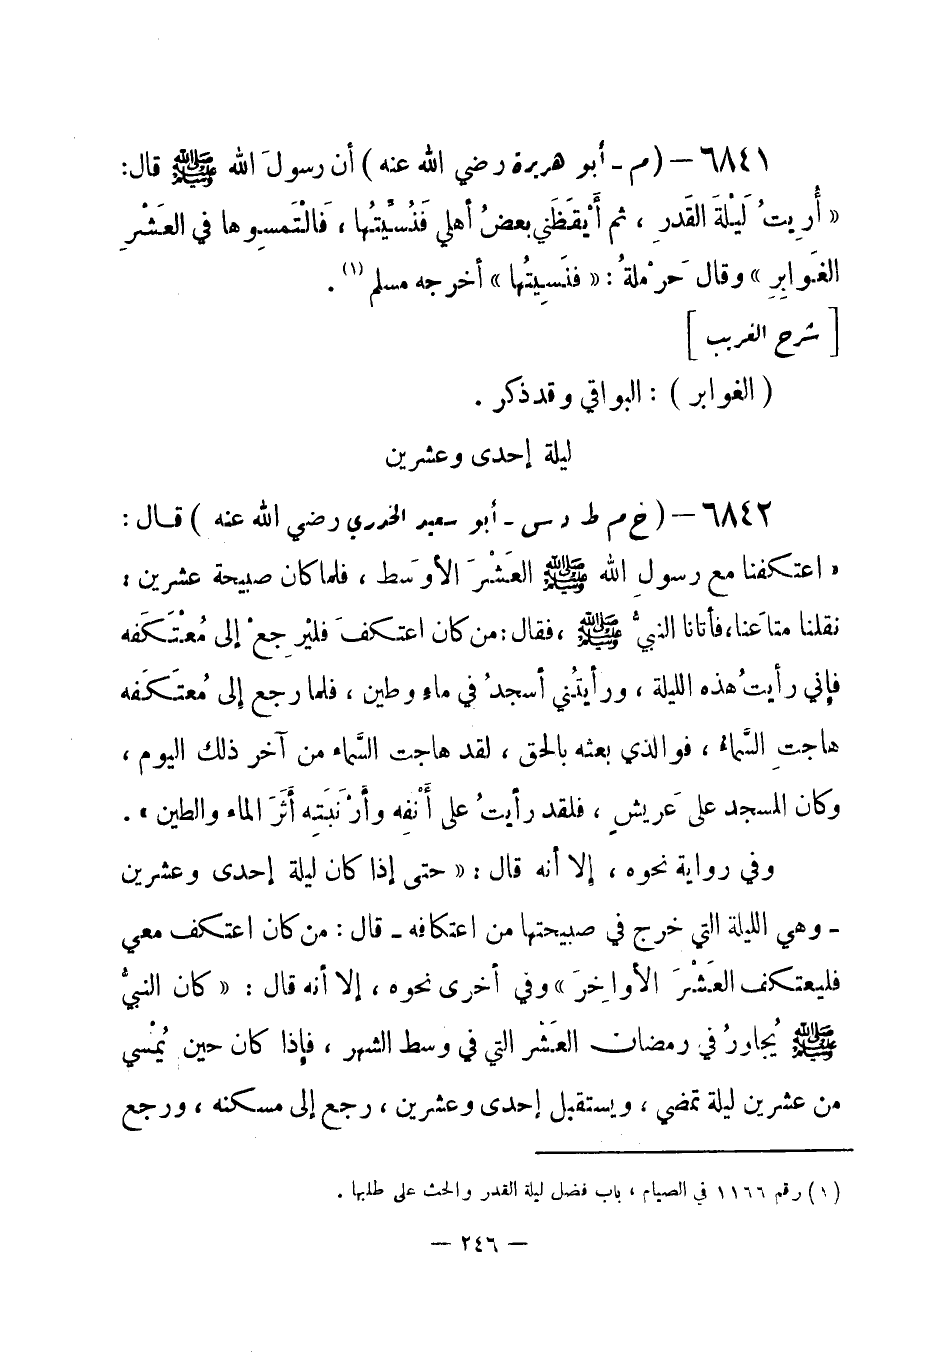 ٦٨٤١ – (م - أبو هريرة رضي الله عنه) أن رسولَ الله ﷺ قال:
« أُريتُ لَيْلَةَ القَدرِ ، ثم أَيْقَظَني بعضُ أهلي فَنُسِّيتُها ، فَالْتَمسِوها في العَشْرِ
الغَوابِرِ » وقال حَرْملةُ : « فنَسِيتُها » أخرجه مسلم (١) .
[ شرح الغريب ]
( الغوابر ) : البواقي وقد ذكر .
ليلة إحدى وعشرين
٦٨٤٢ – ( خ م ط د س - أبو سعيد الخدري رضي الله عنه ) قال :
« اعتكفنا مع رسولِ الله ﷺ العَشْرَ الأوسَط ، فلما كان صبيحة عشرين ؛
نقلنا متاعَنا، فأتانا النبيُّ ﷺ ، فقال : من كان اعتكفَ فليْرجِعْ إلى مُعْتَكَفه
فإني رأيتُ هذه الليلة ، ورأيتُني أسجدُ في ماء وطين ، فلما رجع إلى مُعتَكَفه
هاجتِ السَّماءُ ، فوالذي بعثه بالحق ، لقد هاجت السَّماء من آخر ذلك اليوم ،
وكان المسجد على عَريشٍ ، فلقد رأيتُ على أَنْفِه وأرْنَبَتِه أَثَرَ الماء والطين » .
وفي رواية نحوه ، إلا أنه قال : « حتى إذا كان ليلة إحدى وعشرين
- وهي الليلة التي خرج في صبيحتها من اعتكافه - قال : من كان اعتكف معي
فليعتكف العَشْرَ الأواخِرَ » وفي أخرى نحوه ، إلا أنه قال : « كان النبيُّ
ﷺ يُجاورُ في رمضان العَشْر التي في وسط الشهر ، فإذا كان حين يُمْسي
من عشرين ليلة تمضي ، ويستقبل إحدى وعشرين ، رجع إلى مسكنه ، ورجع
(١) رقم ١١٦٦ في الصيام ، باب فضل ليلة القدر والحث على طلبها .
— ٢٤٦ —